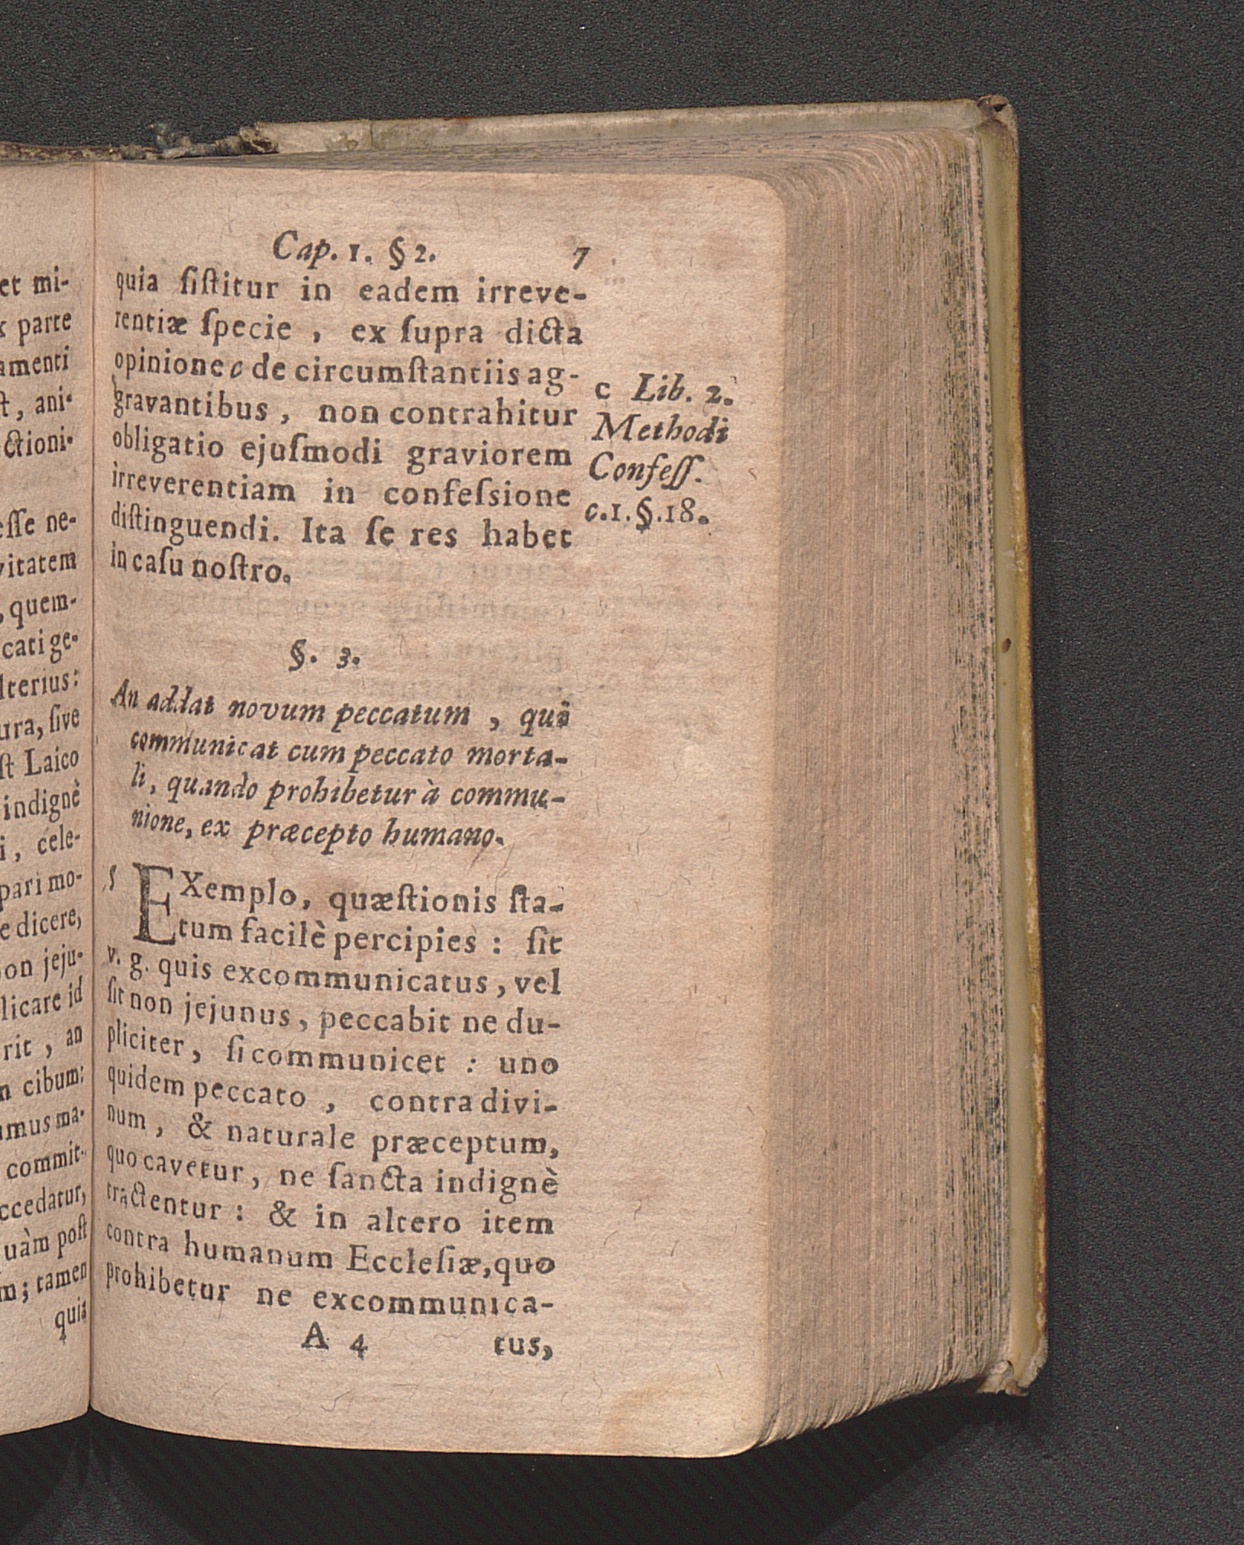 et mi-
parte
amenti
ani-
ctioni-
esse ne-
vitatem
quem-
cati ge-
lterius:
ura, sive
st Laico
indignè
i, cele-
pari mo-
e dicere,
non jeju-
licare id
rit, an
n cibum:
mus ma-
commit-
ccedatur,
uàm post
m; tamen
quia
Cap. 1. § 2. 7
quia ſiſtitur in eadem irreve-
rentiæ ſpecie, ex ſupra dicta
opinione c de circumſtantiis ag-
gravantibus, non contrahitur
obligatio ejuſmodi graviorem
irreverentiam in confeſsione
diſtinguendi. Ita ſe res habet
in caſu noſtro.
c Lib. 2.
Methodi
Confeſſ.
c.1.§.18.
§. 3.
An addat novum peccatum, qui
communicat cum peccato morta-
li, quando prohibetur à commu-
nione, ex præcepto humano.
5 EXemplo, quæſtionis ſta-
tum facilè percipies: ſit
v. g. quis excommunicatus, vel
ſit non jejunus, peccabit ne du-
pliciter, ſi communicet: uno
quidem peccato, contra divi-
num, & naturale præceptum,
quo cavetur, ne ſancta indignè
tractentur: & in altero item
contra humanum Eccleſiæ, quo
prohibetur ne excommunica-
A 4 tus,